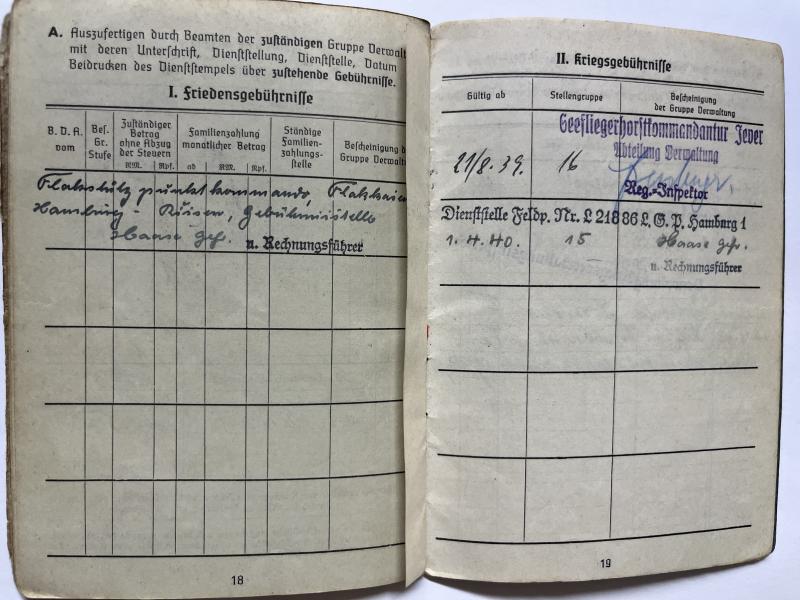 A. Auszufertigen durch Beamten der zuständigen Gruppe Verwalt
mit deren Unterschrift, Dienststellung, Dienststelle, Datum
Beidrucken des Dienststempels über zustehende Gebührnisse.
I. Friedensgebührnisse
B. D. A. vom
Bes. Gr. Stufe
Zuständiger Betrag ohne Abzug der Steuern
RM. Rpf.
Familienzahlung monatlicher Betrag
ab RM. Rpf.
Ständige Familienzahlungsstelle
Bescheinigung d
Gruppe Verwaltu
Hamburg -
Haase Gefr. u. Rechnungsführer
18
II. Kriegsgebührnisse
Gültig ab Stellengruppe Bescheinigung der Gruppe Verwaltung
Seefliegerhorstkommandantur Jever
Abteilung Verwaltung
21/8. 39. 16
Reg.-Inspektor
Dienststelle Feldp. Nr. L 21886 L. G. P. Hamburg 1
1. 4. 40. 15 Haase Gefr.
u. Rechnungsführer
19